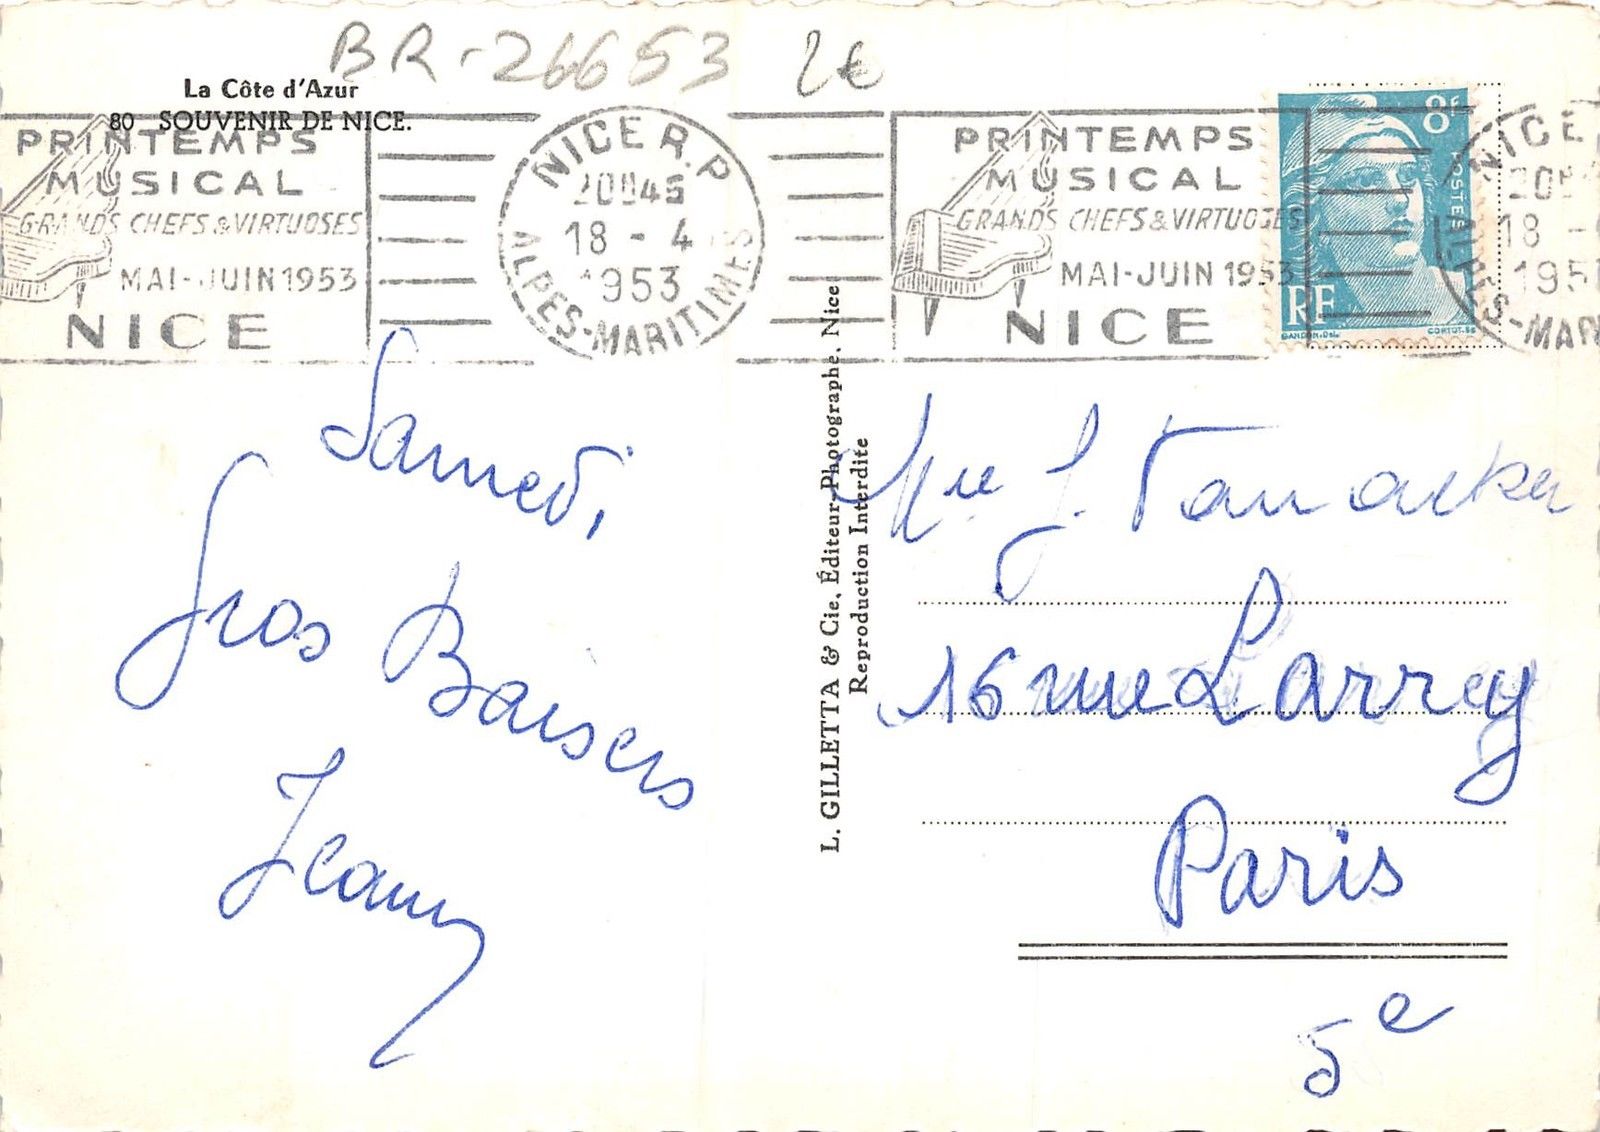 BR-26653 2€
La Côte d'Azur
80 SOUVENIR DE NICE.
PRINTEMPS
MUSICAL
GRANDS CHEFS & VIRTUOSES
MAI-JUIN 1953
NICE
NICE R.P.
20H45
18 - 4
1953
ALPES-MARITIMES
PRINTEMPS
MUSICAL
GRANDS CHEFS & VIRTUOSES
MAI-JUIN 1953
NICE
8F
POSTES
RF
GANDON-Del.
CORTOT-SC
NICE
20H
18 -
195
ALPES-MAR
Samedi,
Gros Baisers
L. GILLETTA & Cie, Éditeur-Photographe, Nice
Reproduction Interdite
J.
16 rue Larrey
Paris
5e